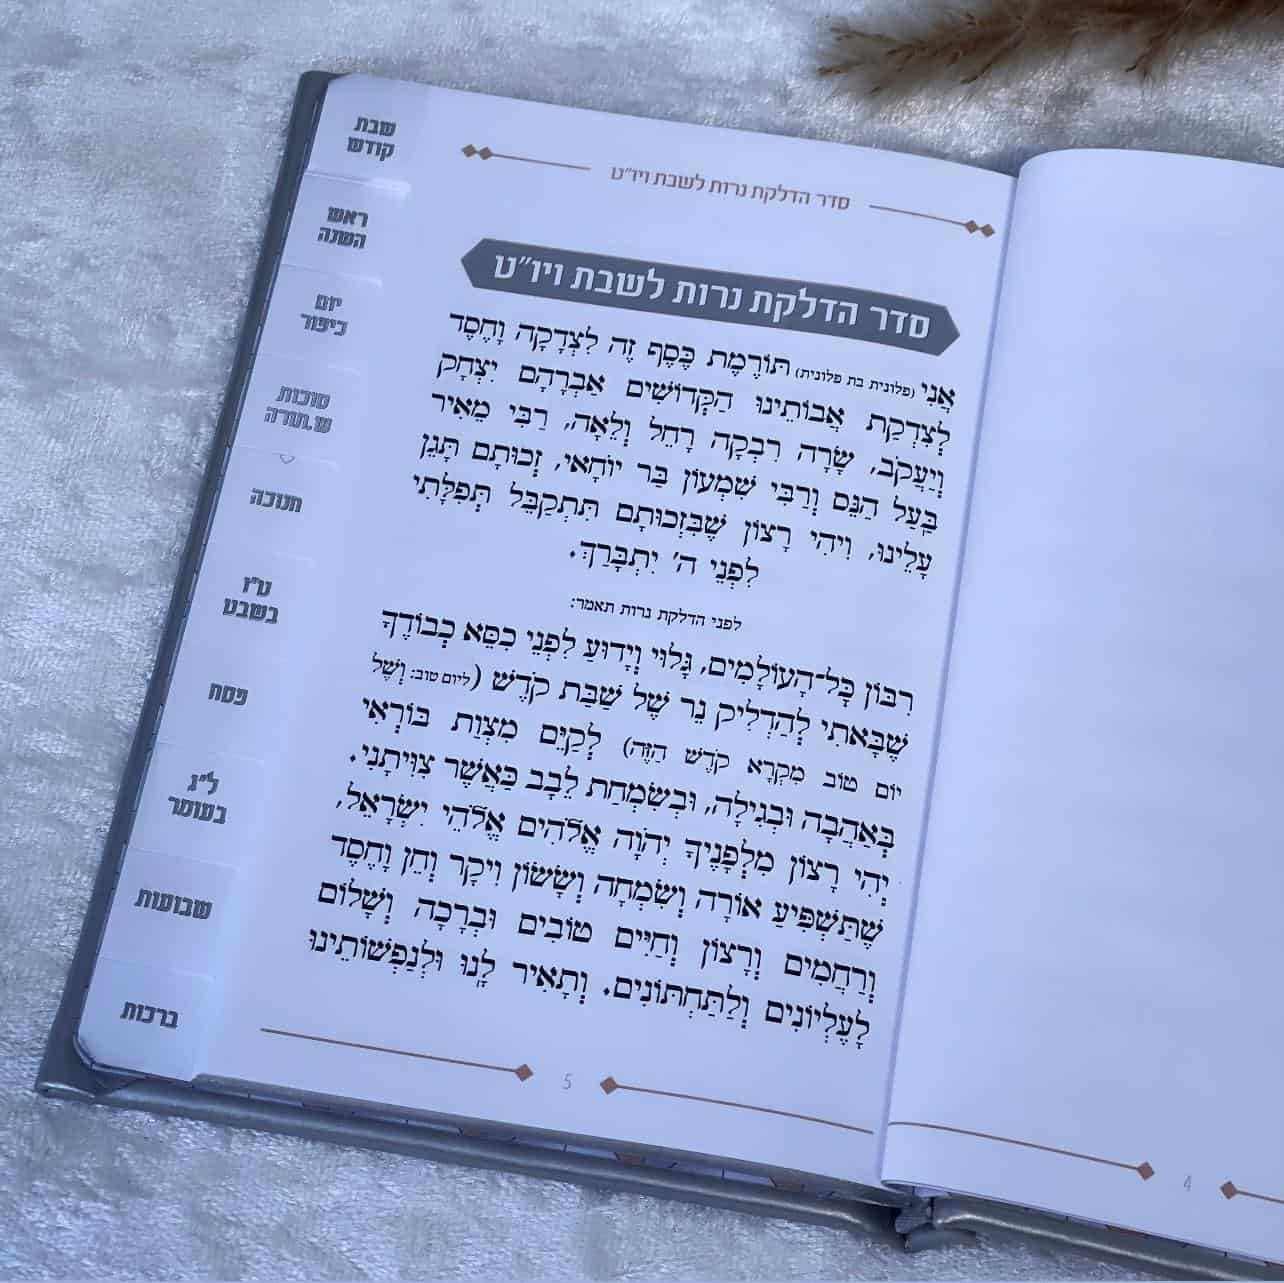 סדר הדלקת נרות לשבת ויו"ט
סדר הדלקת נרות לשבת ויו"ט
אֲנִי (פלונית בת פלונית) תּוֹרֶמֶת כֶּסֶף זֶה לִצְדָקָה וָחֶסֶד
לְצִדְקַת אֲבוֹתֵינוּ הַקְּדוֹשִׁים אַבְרָהָם יִצְחָק
וְיַעֲקֹב, שָׂרָה רִבְקָה רָחֵל וְלֵאָה, רַבִּי מֵאִיר
בַּעַל הַנֵּס וְרַבִּי שִׁמְעוֹן בַּר יוֹחָאי, זְכוּתָם תָּגֵן
עָלֵינוּ, וִיהִי רָצוֹן שֶׁבִּזְכוּתָם תִּתְקַבֵּל תְּפִלָּתִי
לִפְנֵי ה' יִתְבָּרַךְ.
לפני הדלקת נרות תאמר:
רִבּוֹן כָּל־הָעוֹלָמִים, גָּלוּי וְיָדוּעַ לִפְנֵי כִסֵּא כְבוֹדֶךָ
שֶׁבָּאתִי לְהַדְלִיק נֵר שֶׁל שַׁבַּת קֹדֶשׁ (ליום טוב: וְשֶׁל
יוֹם טוֹב מִקְרָא קֹדֶשׁ הַזֶּה) לְקַיֵּם מִצְוַת בּוֹרְאִי
בְּאַהֲבָה וּבְגִילָה, וּבְשִׂמְחַת לֵבָב כַּאֲשֶׁר צִוִּיתָנִי.
יְהִי רָצוֹן מִלְּפָנֶיךָ יְהֹוָה אֱלֹהִים אֱלֹהֵי יִשְׂרָאֵל,
שֶׁתַּשְׁפִּיעַ אוֹרָה וְשִׂמְחָה וְשָׂשׂוֹן וִיקָר וְחֵן וָחֶסֶד
וְרַחֲמִים וְרָצוֹן וְחַיִּים טוֹבִים וּבְרָכָה וְשָׁלוֹם
לָעֶלְיוֹנִים וְלַתַּחְתּוֹנִים. וְתָאִיר לָנוּ וּלְנַפְשׁוֹתֵינוּ
5
שבת
קודש
ראש
השנה
יום
כיפור
סוכות
ש.תורה
חנוכה
ט"ו
בשבט
פסח
ל"ג
בעומר
שבועות
ברכות
4